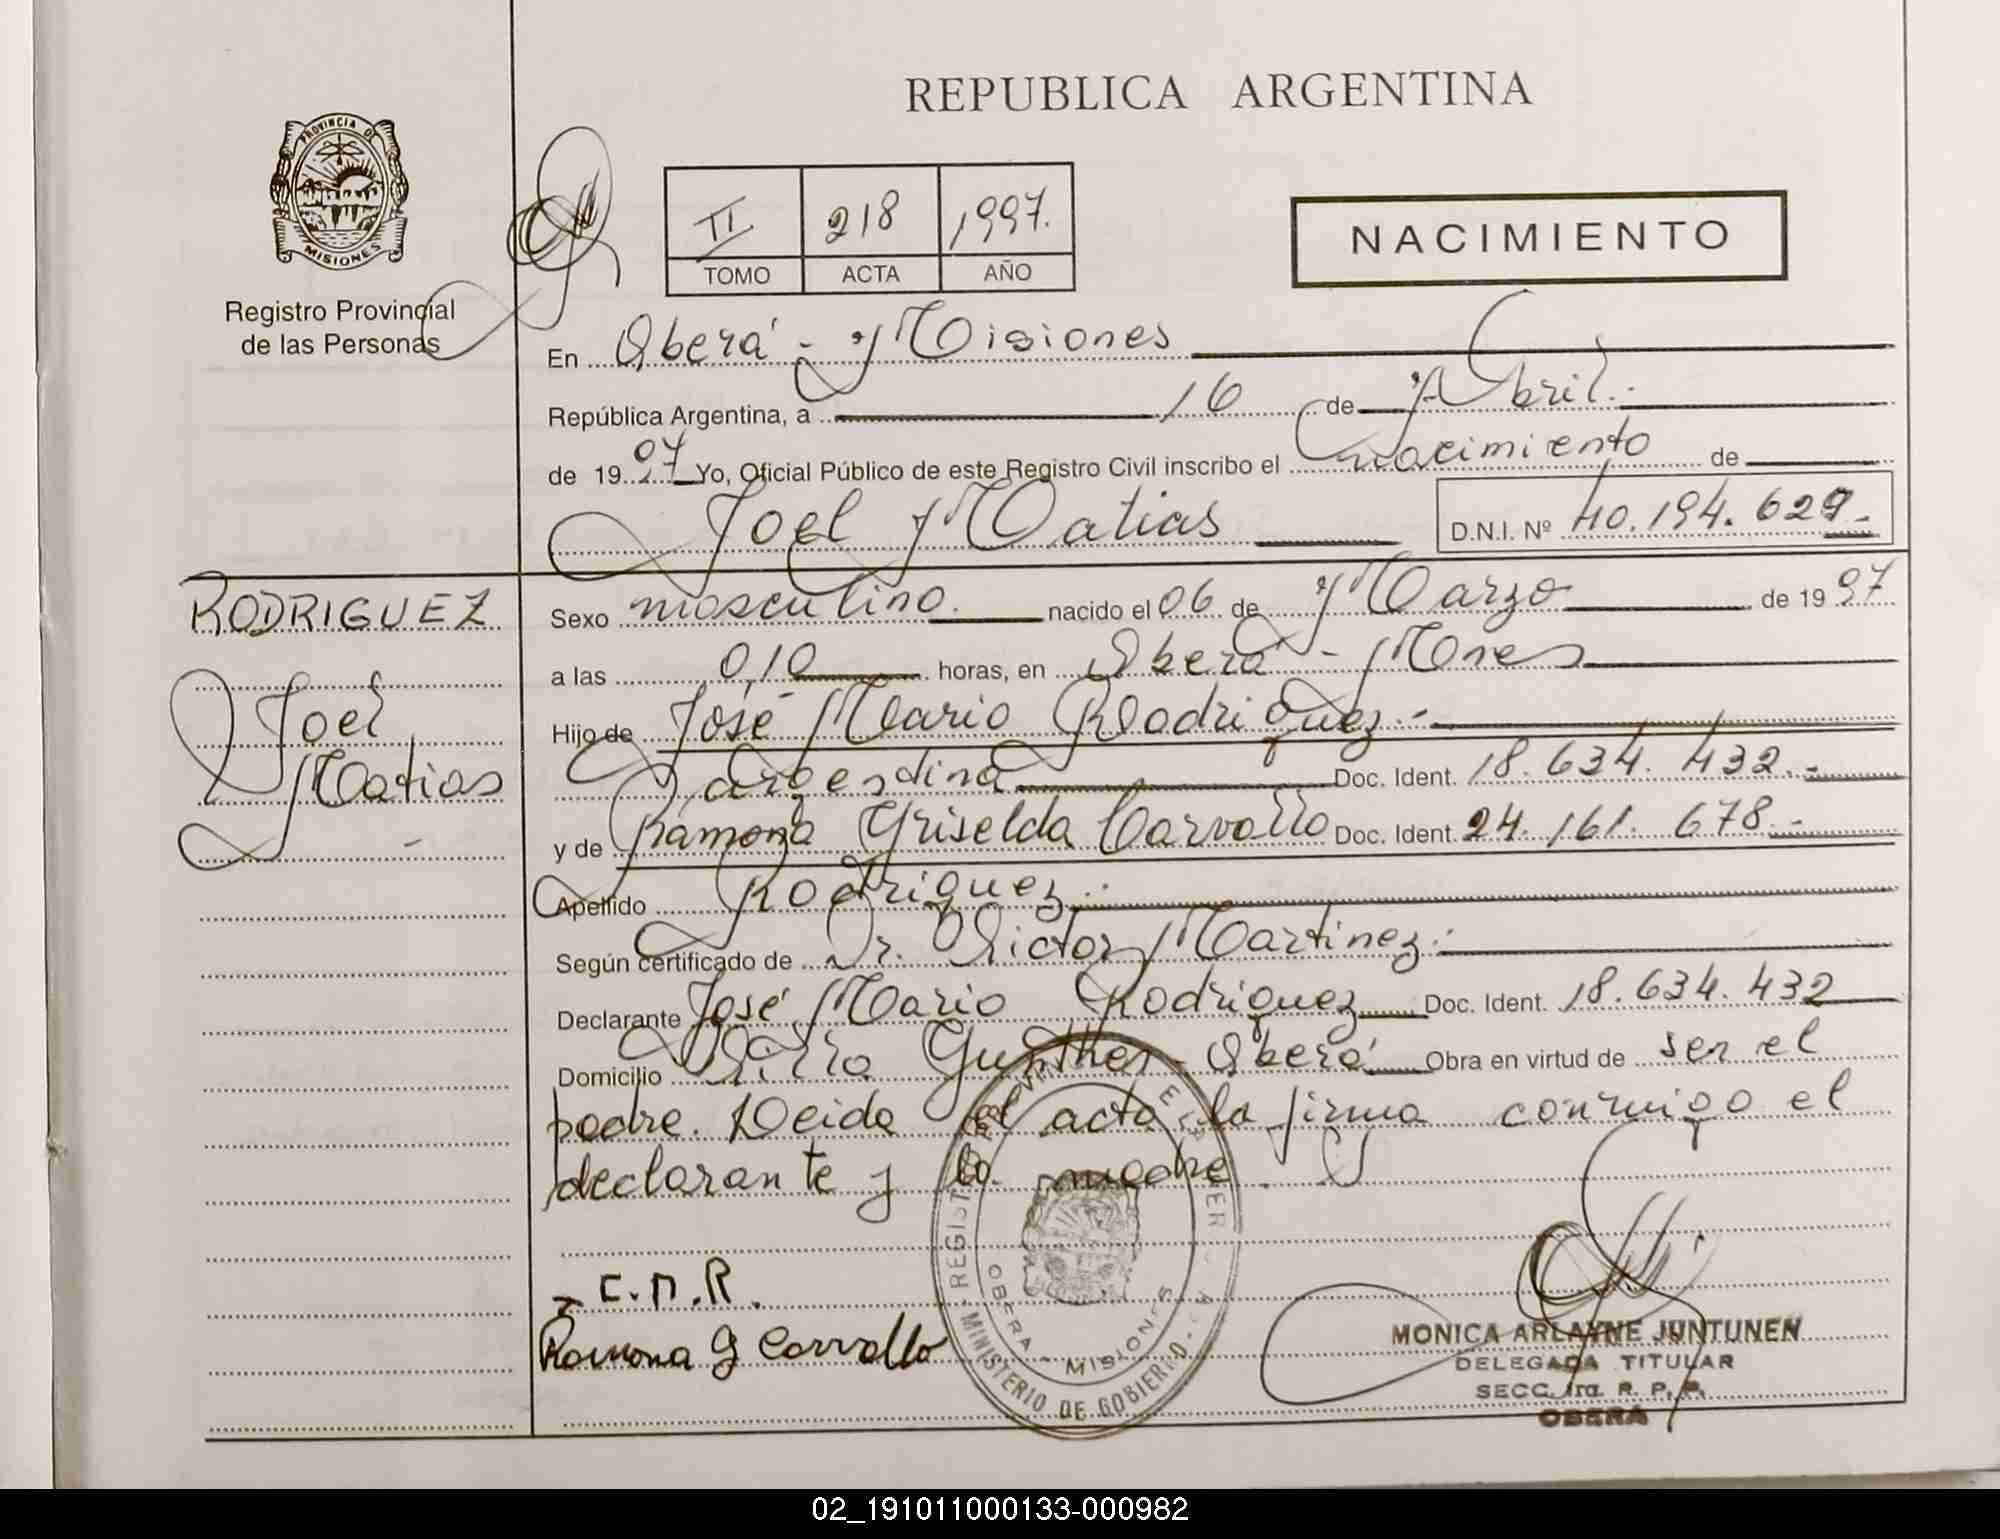 REPUBLICA ARGENTINA
PROVINCIA DE
MISIONES
Registro Provincial
de las Personas
II 218 1997.
TOMO ACTA AÑO
NACIMIENTO
En Oberá - Misiones
República Argentina, a 16 de Abril.
de 1997 Yo, Oficial Público de este Registro Civil inscribo el nacimiento de
Joel Matias D.N.I. Nº 40.194.629.-
RODRIGUEZ
Joel
Matias
-
Sexo masculino. nacido el 06 de Marzo de 1997
a las 0,10 horas, en Oberá - Mnes
Hijo de José Mario Rodriguez.-
argentina Doc. Ident. 18.634.432.-
y de Ramona Griselda Carvallo Doc. Ident. 24.161.678.-
Apellido Rodriguez.:
Según certificado de Dr. Victor Martinez.:
Declarante José Mario Rodriguez Doc. Ident. 18.634.432
Domicilio Villa Gunther - Oberá Obra en virtud de ser el
padre. Leida el acta la firma conmigo el
declarante y la madre.
Ramona G Carvallo
OBERA - MISIONES
MINISTERIO DE GOBIERNO
MONICA ARLAYNE JUNTUNEN
DELEGADA TITULAR
SECC. 1ra. R. P. P.
OBERA
02_191011000133-000982